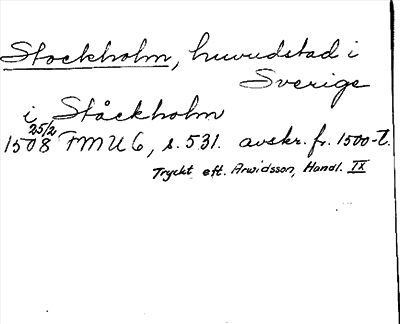 Stockholm, huvudstad i
Sverige
i Ståckholm
25/2
1508 FMU 6, s. 531. avskr. fr. 1500-t.
Tryckt eft. Arwidsson, Handl. IX